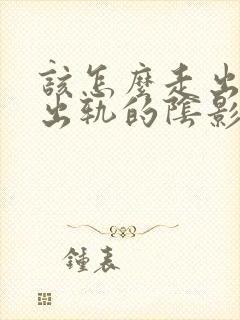 該怎麼走出
出軌的陰影
鍾表